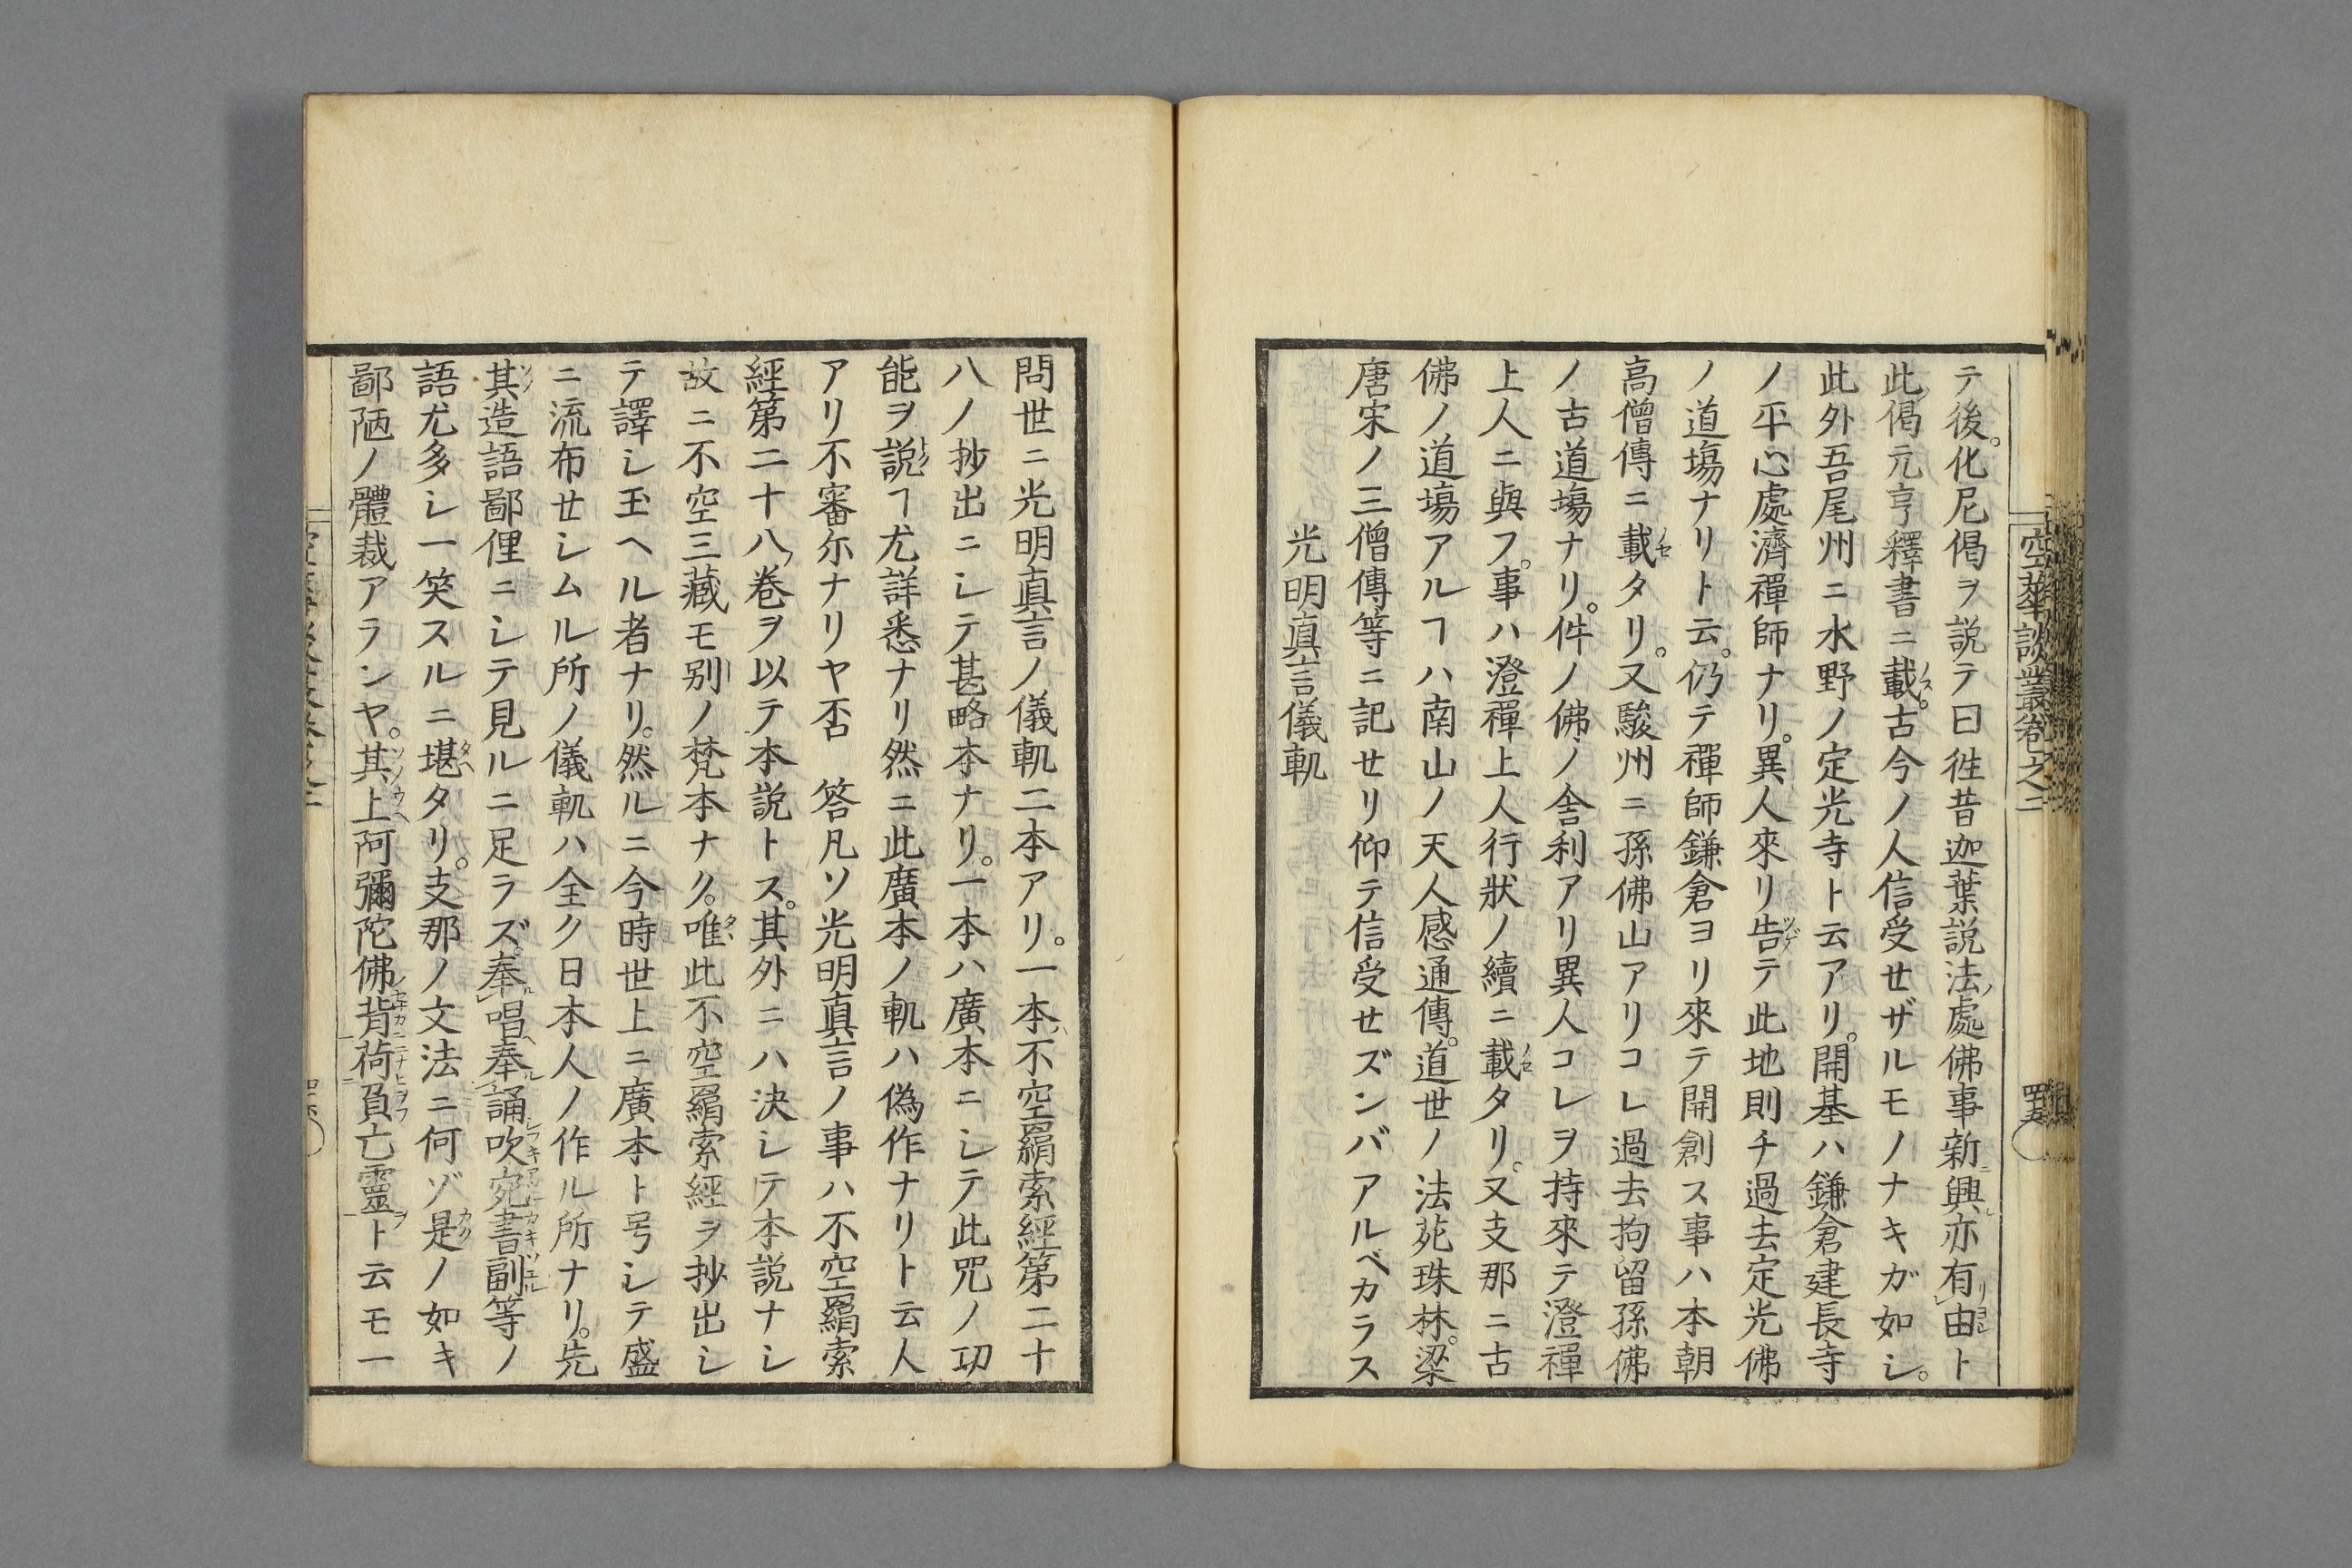 空華談叢卷之二
四十五
テ後。化尼偈ヲ説テ曰徃昔迦葉説法ノ處佛事新ニ興ル亦有リ由ヨシト
此ノ偈元亨釋書ニ載ノス。古今ノ人信受セザルモノナキガ如シ。
此外吾尾州ニ水野ノ定光寺ト云アリ。開基ハ鎌倉建長寺
ノ平心處濟禪師ナリ。異人來リ告ツゲテ此地則チ過去定光佛
ノ道塲ナリト云。仍テ禪師鎌倉ヨリ來テ開創ス事ハ本朝
高僧傳ニ載ノセタリ。又駿州ニ孫佛山アリコレ過去拘留孫佛
ノ古道塲ナリ。件ノ佛ノ舎利アリ異人コレヲ持來テ澄禪
上人ニ與フ。事ハ澄禪上人行狀ノ續ニ載ノセタリ。又支那ニ古
佛ノ道塲アルヿハ南山ノ天人感通傳。道世ノ法苑珠林。梁
唐宋ノ三僧傳等ニ記セリ仰テ信受セズンバアルベカラス
光明真言儀軌
問世ニ光明真言ノ儀軌二本アリ。一本ハ不空羂索經第二十
八ノ抄出ニシテ甚略本ナリ。一本ハ廣本ニシテ此咒ノ功
能ヲ説トクヿ尤詳悉ナリ然ニ此廣本ノ軌ハ偽作ナリト云人
アリ不審尓ナリヤ否　答凡ソ光明真言ノ事ハ不空羂索
經第二十八ノ卷ヲ以テ本説トス。其外ニハ決シテ本説ナシ
故ニ不空三藏モ別ノ梵本ナク。唯タヽ此不空羂索經ヲ抄出シ
テ譯シ玉ヘル者ナリ。然ルニ今時世上ニ廣本ト号シテ盛
ニ流布セシムル所ノ儀軌ハ全ク日本人ノ作ル所ナリ。先
其ソノ造語鄙俚ニシテ見ルニ足ラズ。奉ル唱ヘ奉ル誦シ吹フキ宛アテ書カキ副ソエル等ノ
語尤多シ一笑スルニ堪タヘタリ。支那ノ文法ニ何ゾ是カクノ如キ
鄙陋ノ體裁アランヤ。其ソノ上ウヘ阿彌陀佛背セナカニ荷ニナヒ負ヲフ亡靈ヲト云モ一